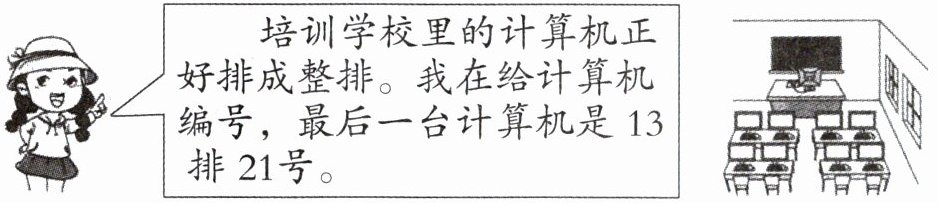 培训学校里的计算机正
好排成整排。我在给计算机
编号，最后一台计算机是 13
排 21号。